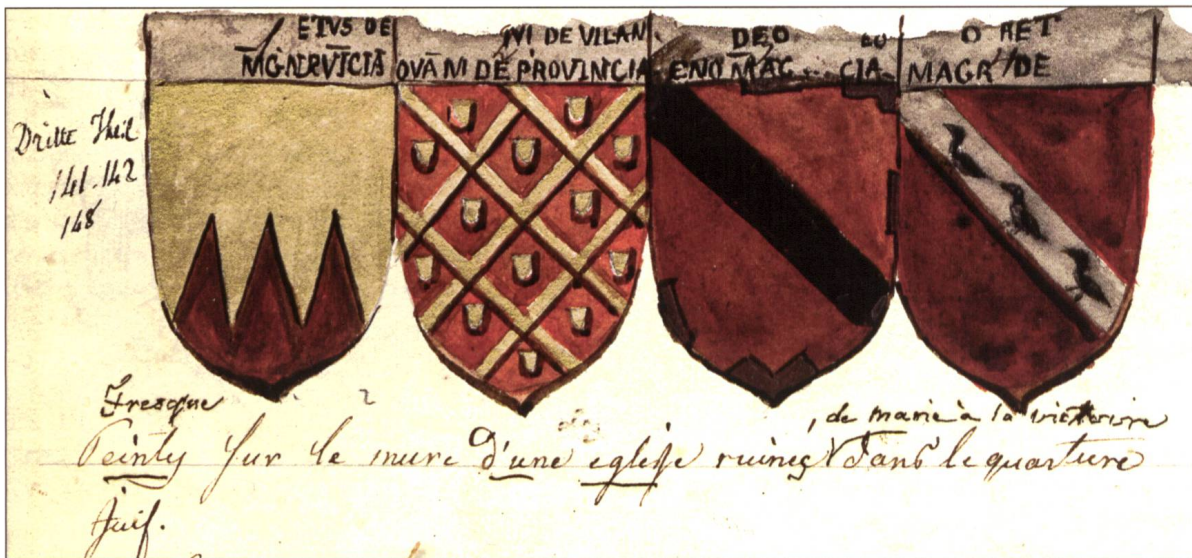 ETVS DE
M̄GNERV̄TCIĀ
IVI DE VILAN
OVĀM DĒ PROVINCIA
DEO LO
ENO MĀG...CIA
O RET
MAGR̄ DE
Dritte Theil
141.142
148
Fresque
2
, de marie à la victoire
Peinty sur le mure d'une eglise ruinés dans le quarture
Juif.